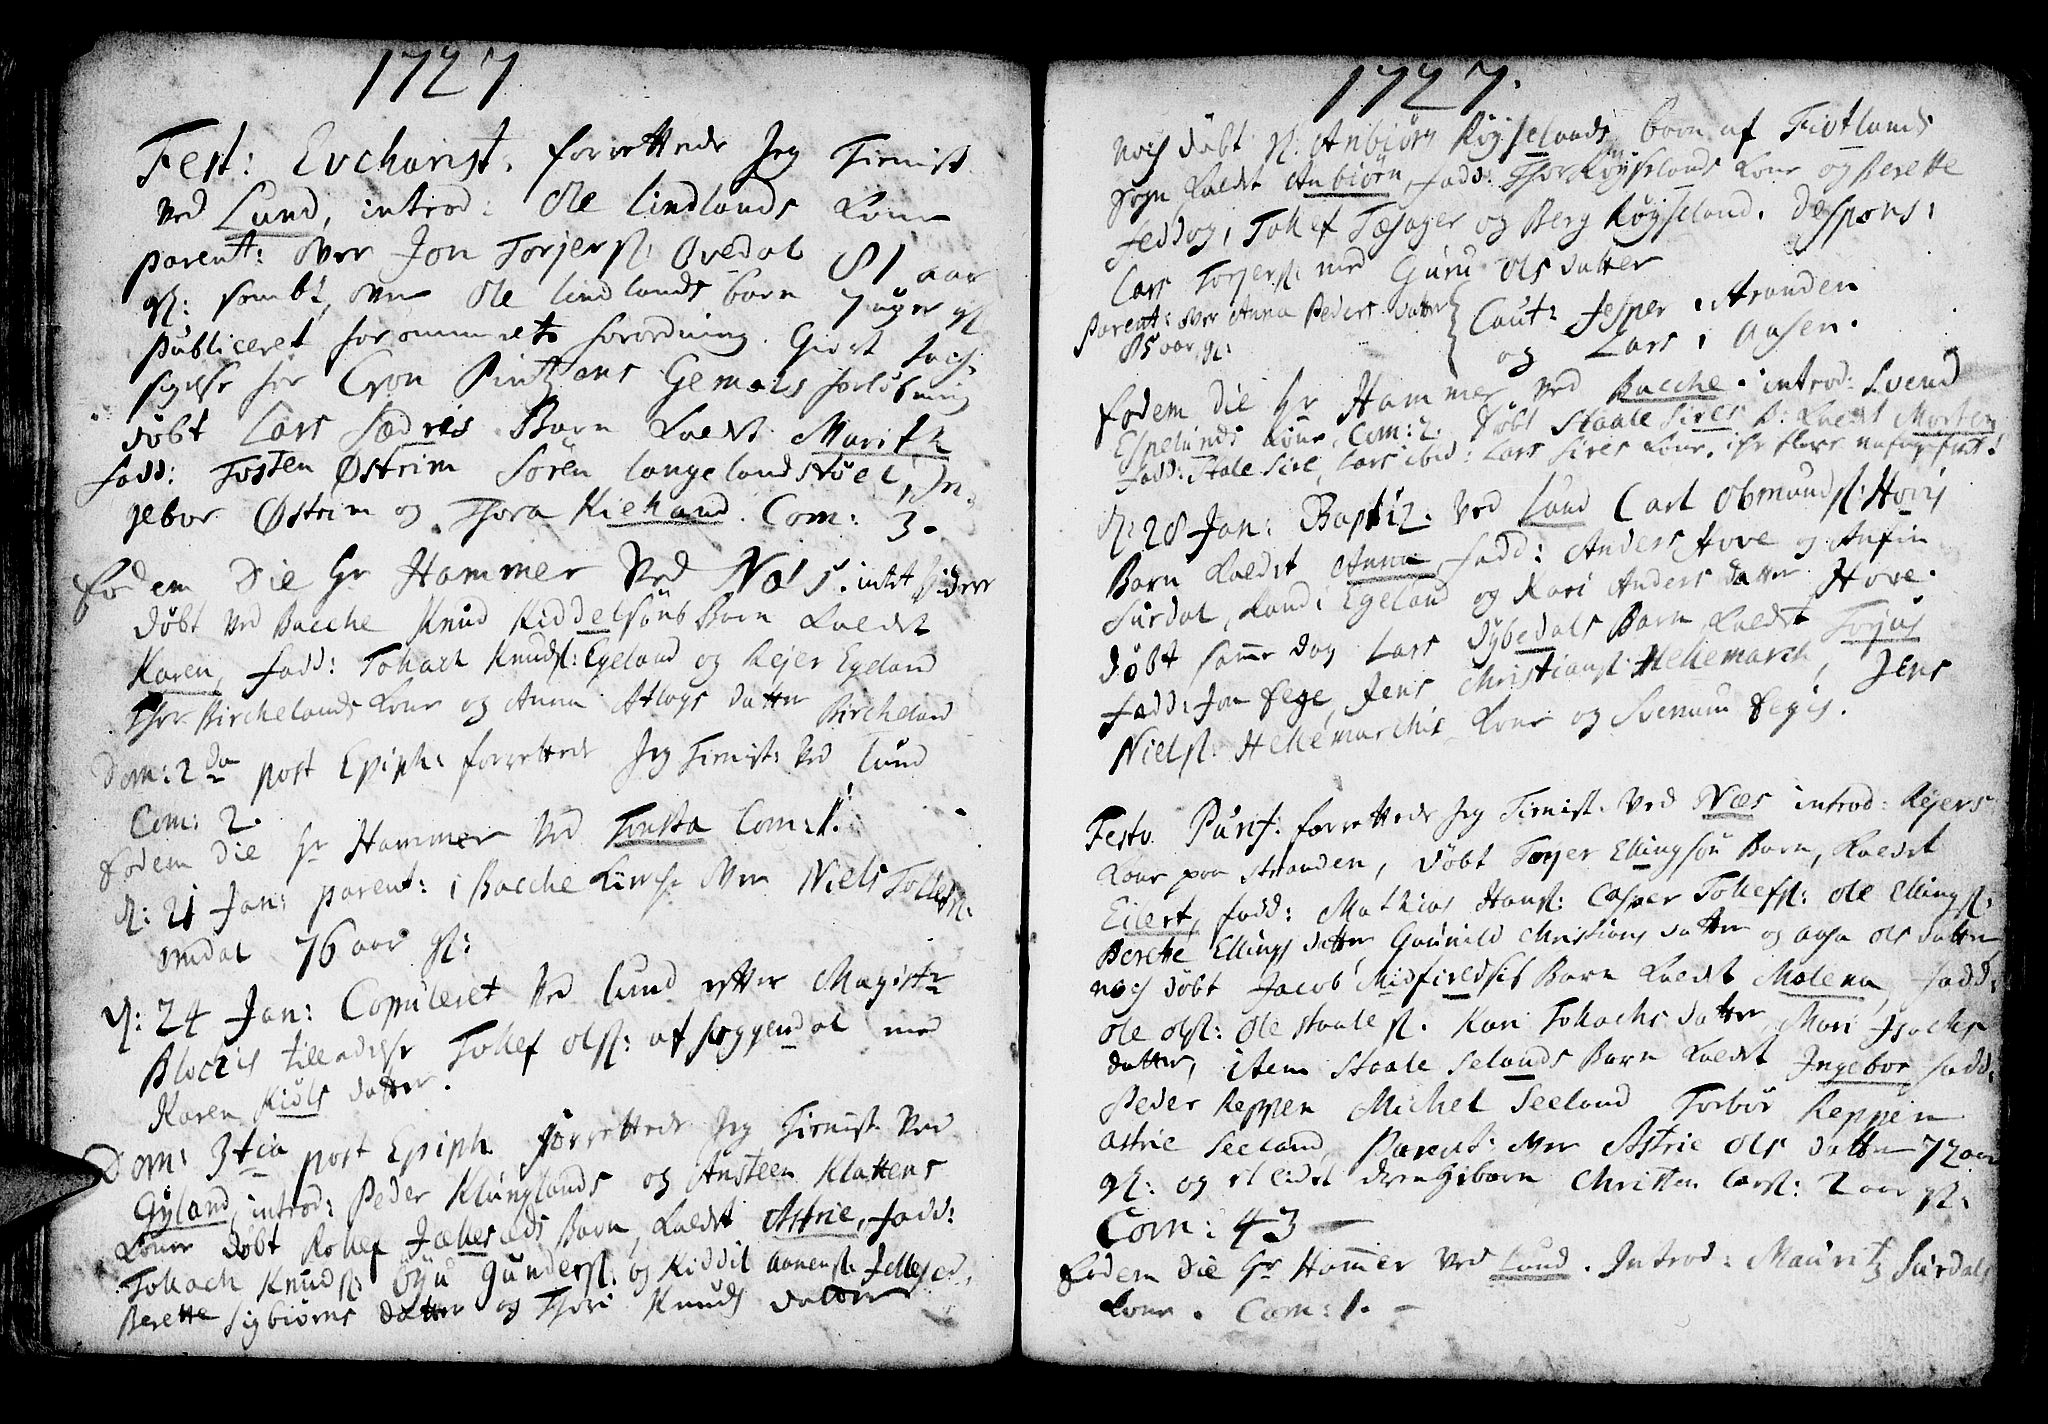 1727
Fest: Evcharist. forrettede Jeg Tienist
ved Lund, introd: Ole Lindlands Kone
parent: over Jon Torjers: Ovedal 81 aar
gl: sambt, over Ole Lindlands barn 7 uger gl
publiceret forommelte forordning. Giort tach-
sigelse for Cron Printzens Gemals forløsning
døbt Lars Sædris Barn kaldt Marith
fadd: Tosten Østrim Søren Langelandstøel, In-
gebor Østrim og Thora Kielland. Com: 3.
Eodem Die Hr Hammer ved Næs. intet videre
døbt ved Bacche Knud Kiddelsøns Barn kaldet
Karen, fadd: Tollach Knuds: Egeland og Rejer Egeland
Thore Birchelands Kone og Anna Atlogs datter Bircheland
Dom: 2da post Epiph: forrettede Jeg Tienist: ved Lund
Com: 2.
Eodem Die Hr Hammer ved Tonsta Com: 1.
d: 21 Jan: parent: i Bacche Kirche over Niels Tollefs:
omdal 76 aar gl:
d: 24 Jan: Copuleret ved Lund efter Magistr
Blochs tilladelse Tollef Ols: af Heggendal med
Karen Kiøls datter.
Dom: 3tia post Epiph forrettede Jeg Tienist ved
Gyland, introd: Peder Klunglands og Ansteen Klattens
Koner døbt Rollef Jallesæds Barn, kaldt Astrie, fadd:
Tollach Knuds: Øyu Gunders: og Kiddil Aanens: Jellesed,
Berette Sigbiørns datter og Thori Knuds datter
1727.
noch døbt Sl. Anbiørn Røyselands barn af Fiotlands
Sogn kaldt Anbiørn, fadd: Thor Røyselands Kone og Berette
Feddog, Tollef Tæsager og Berg Røyseland. Despons:
Lars Torjers: med Guru Ols datter
parent: over Anna Peders datter Caut: Jesper i Stranden
85 aar gl: og Lars i Aasen.
Eodem Die Hr Hammer ved Bacche. introd: Svend
Espelunds Kone. Com: 2. Døbt Staale Sires B: kaldt Morten
fadd: Stale Sire, Lars ibid: Lars Sires Kone, iche flere
d: 28 Jan: Baptiz. ved Lund Carl Obmunds: Hovis
Barn kaldet Anna fadd: Anders Hove og Anfin
Surdal, Rand: Egeland og Kari Anders datter Hove.
døbt samme dag Lars Dybedals Barn kaldet Torjus
fadd: Jon Eege, Jens Christians: Hellemarch, Jens
Niels: Hellemarchis Kone og Svenum Eegis.
Festo Purif: forrettede Jeg Tienist. ved Næs introd: Rejers
Kone paa Stranden, døbt Torjer Ellingsøn Barn, kaldet
Eilert, fadd: Mathias Hans: Casper Tollefs: Ole Ellings:
Berette Ellings datter, Gaunild Christians datter og Aasa Ols datter
noch døbt Jacob Midfieldsis Barn kaldet Malena, fadd:
Ole Ols: Ole Staales. Kari Tollachs datter, Mari Isachs
datter, item Staale Selands Barn kaldet Ingebor fadd:
Peder Reppen Michel Seeland Torbør Reppen
Astrie Seeland, Parent: over Astrie Ols datter 72 aar
gl: og et lidet drengebarn Christen Lars: 2 aar gl:
Com: 43
Eodem Die Hr Hammer ved Lund. Introd: Mauritz Surdals
Kone. Com: 1.